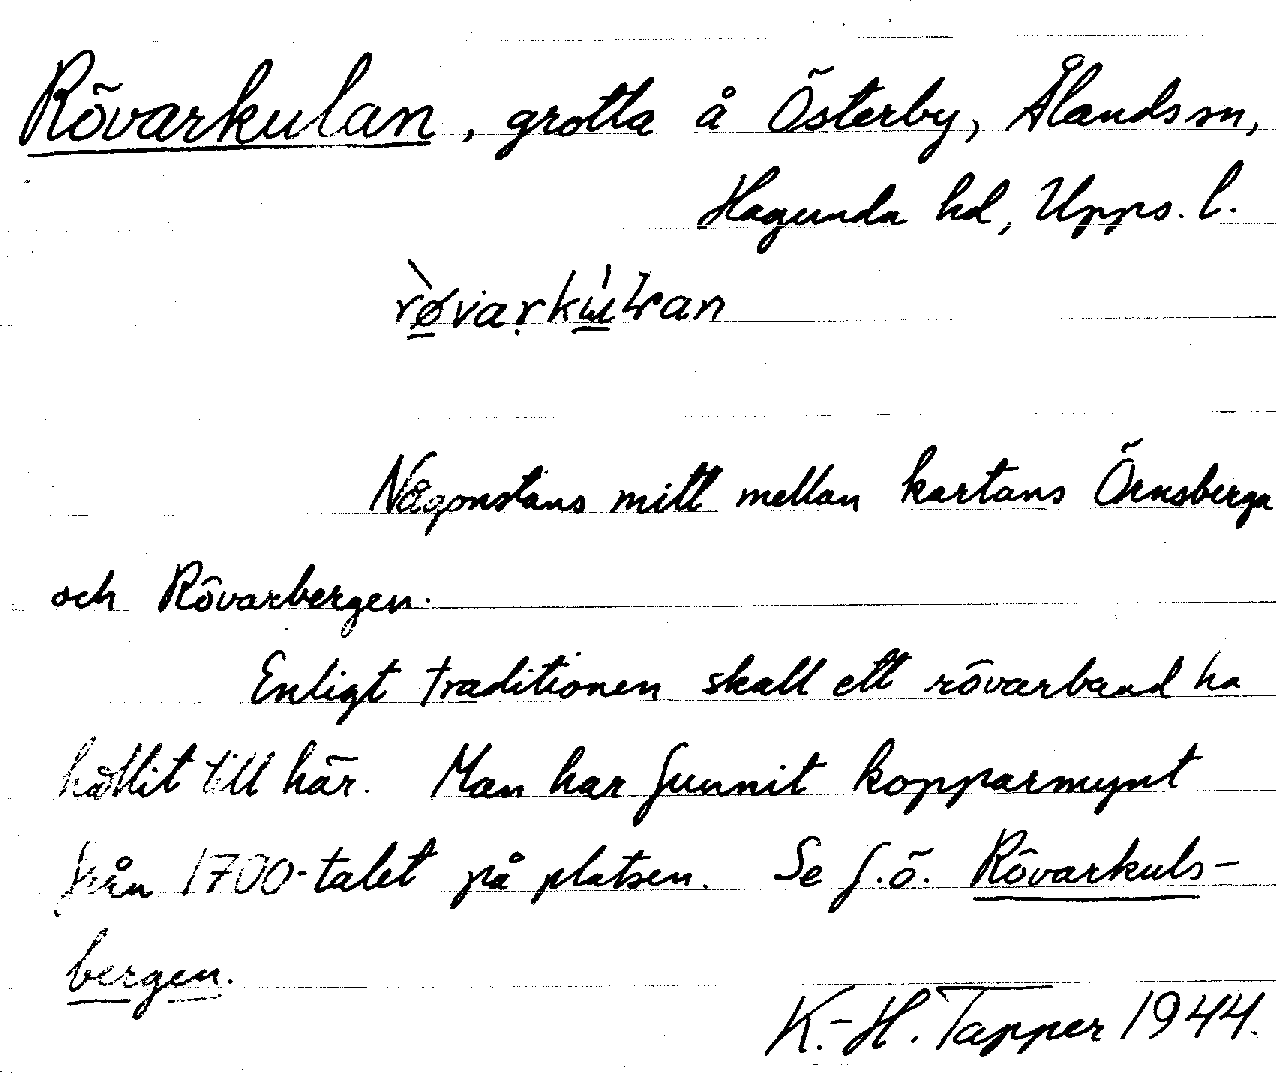 Rövarkulan, grotta å Österby, Ålands sn,
Hagunda hd, Upps. l.
Någonstans mitt mellan kartans Örnsberga
och Rövarbergen.
Enligt traditionen skall ett rövarband ha
hållit till här. Man har funnit kopparmynt
från 1700-talet på platsen. Se f.ö. Rövarkuls-
bergen.
K.-H. Tapper 1944.